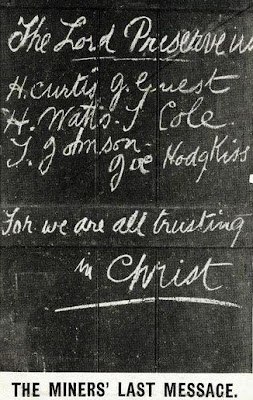 The Lord Preserve us
H. Curtis J. Guest
H. Watts. J Cole.
T. Johnson.
Joe Hodgkiss
For we are all trusting
in Christ
THE MINERS' LAST MESSAGE.